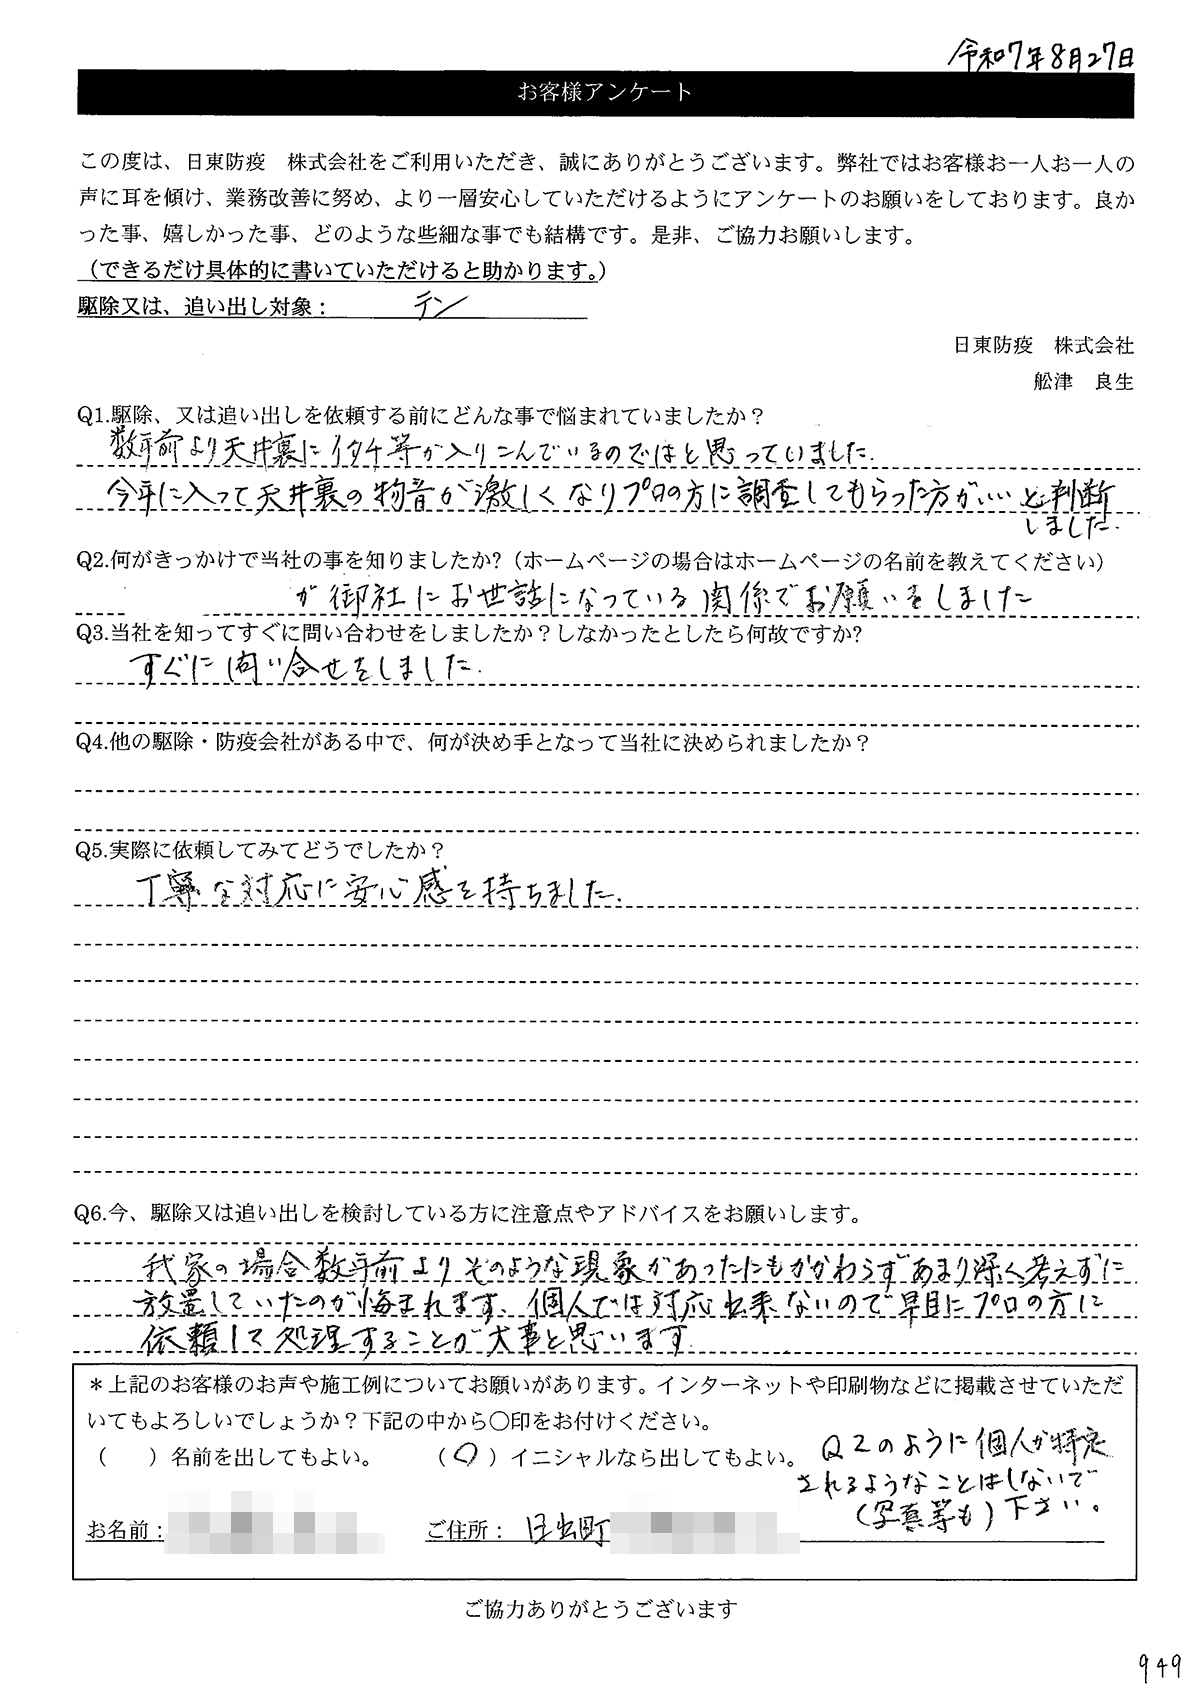 令和7年8月27日
お客様アンケート
この度は、日東防疫　株式会社をご利用いただき、誠にありがとうございます。弊社ではお客様お一人お一人の
声に耳を傾け、業務改善に努め、より一層安心していただけるようにアンケートのお願いをしております。良か
った事、嬉しかった事、どのような些細な事でも結構です。是非、ご協力お願いします。
（できるだけ具体的に書いていただけると助かります。）
駆除又は、追い出し対象：　テン
日東防疫　株式会社
舩津　良生
Q1.駆除、又は追い出しを依頼する前にどんな事で悩まれていましたか？
数年前より天井裏にイタチ等が入りこんでいるのではと思っていました.
今年に入って天井裏の物音が激しくなりプロの方に調査してもらった方がいいと判断
しました.
Q2.何がきっかけで当社の事を知りましたか?（ホームページの場合はホームページの名前を教えてください）
が御社にお世話になっている関係でお願いをしました
Q3.当社を知ってすぐに問い合わせをしましたか？しなかったとしたら何故ですか?
すぐに問い合せをしました.
Q4.他の駆除・防疫会社がある中で、何が決め手となって当社に決められましたか？
Q5.実際に依頼してみてどうでしたか？
丁寧な対応に安心感を持ちました.
Q6.今、駆除又は追い出しを検討している方に注意点やアドバイスをお願いします。
我家の場合数年前よりそのような現象があったにもかかわらずあまり深く考えずに
放置していたのが悔まれます、個人では対応出来ないので早目にプロの方に
依頼して処理することが大事と思います.
＊上記のお客様のお声や施工例についてお願いがあります。インターネットや印刷物などに掲載させていただ
いてもよろしいでしょうか？下記の中から〇印をお付けください。
（　　）名前を出してもよい。　　（〇）イニシャルなら出してもよい。
Q2のように個人が特定
されるようなことはしないで
（写真等も）下さい。
お名前：　　ご住所：　日出町
ご協力ありがとうございます
949